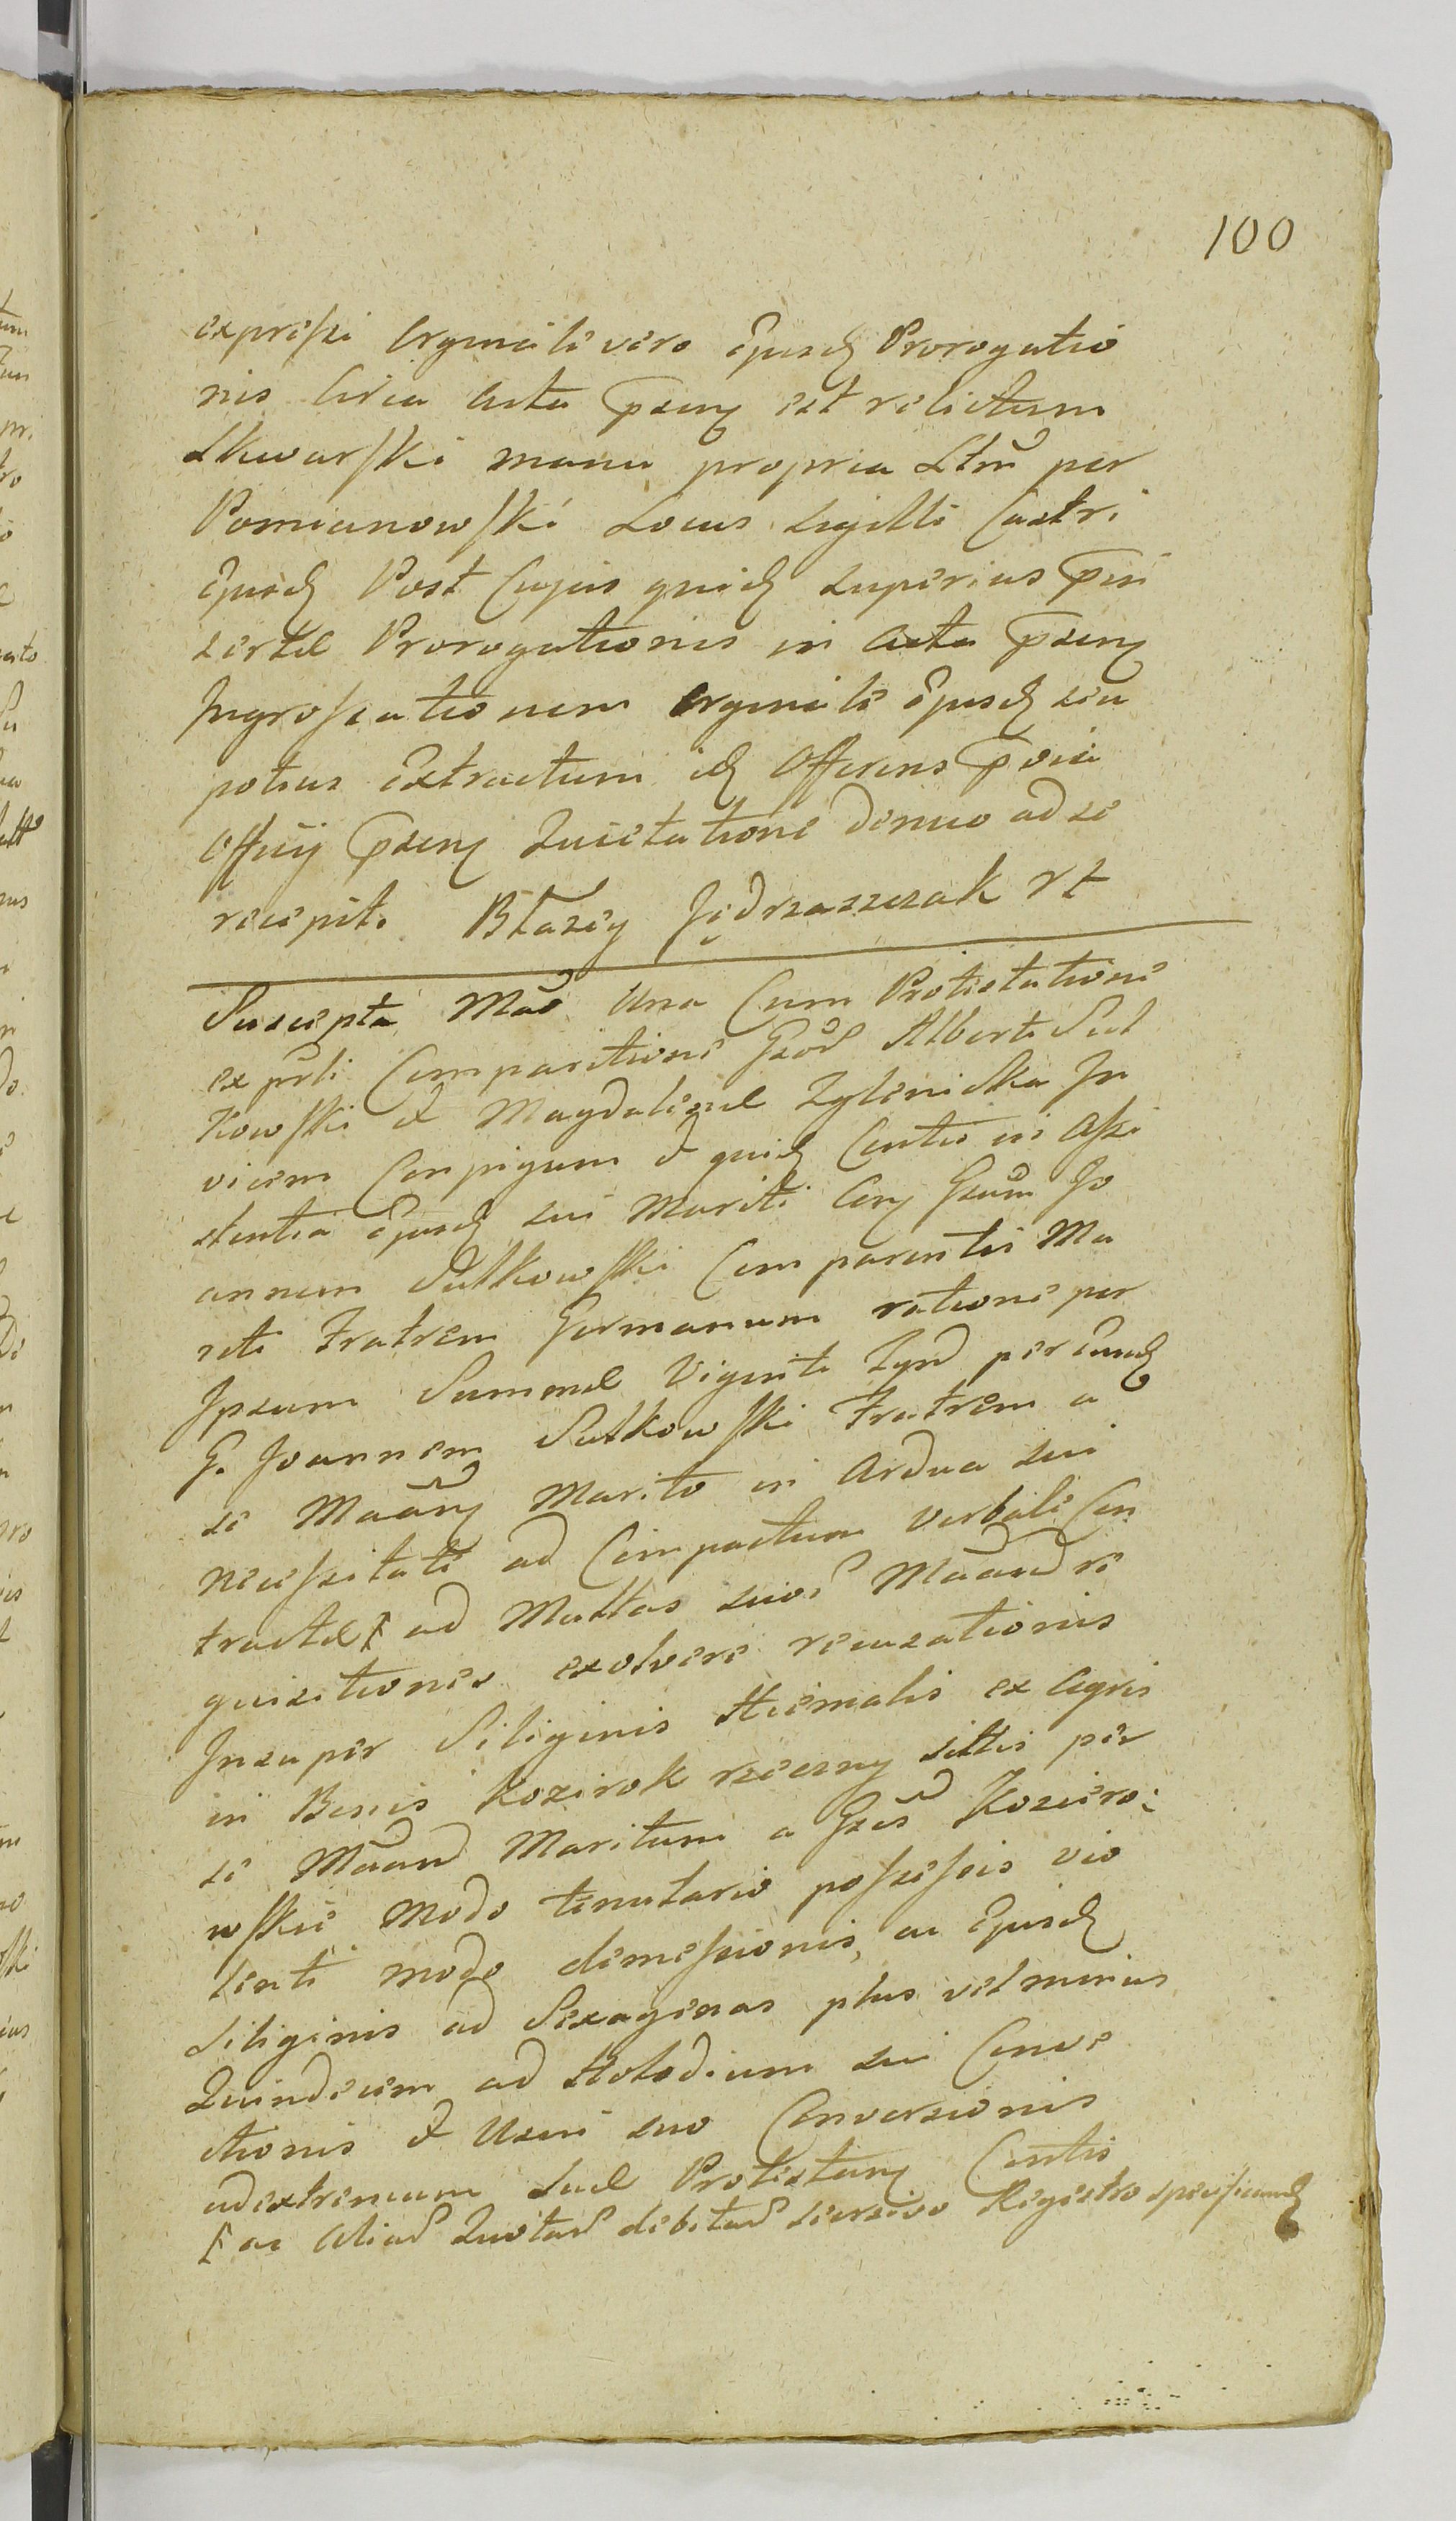 100
expressi Orginale vero Ejusd Prorogatio
nis Circa Acta psenq est relictum
Skwarski manu propria Ltm per
Pomianowski Locus Sigilli Castri
Ejusd Post Cujus quid Superius pin
sertæ Prorogationis in Acta psenq
Ingrossationem Orginale Ejusd seu
potius Extractum id Offerens
Officij psenq Quietatione denuo ad se
recepit. Błazey Jędrzaszczak rt
Suscepta Mão Una Cum Protestatione
ex prli Comparitione Gsőr Alberti Sut
kowski & Magdalenæ Zglenicka In
vicem Conjugum & quid Contis in Assi
stentia Ejusd sui Mariti Conq Gsum Jo
annem Sutkowski Comparentis Ma
riti Fratrem Germanum ratione per
Ipsum Summæ Viginti Tynf per Eund
G. Joannem Sutkowski Fratrem a
se Maãnq Marito in Ardua sui
necessitate ad Compactum Verbale Con
tractæ ad Multas suos Maand re
quisitiones exolvere recusationis
Insuper Siliginis Hiemalis ex Agris
in Bonis Kozirok rzeczny sittis per
se Maand Maritum a Gsis Koziero:
wskie Modo tenutario possessis vio
lenti modo demessionis, ac Ejusd
Siliginis ad Sexagenas plus vel minus
Quindecim ad Holodium sui Conve
ctionis & Usui suo Conversionis
ad extremum suæ Protestanq Contis
ac Alias Quotas debitas seorsivo Registro specificand